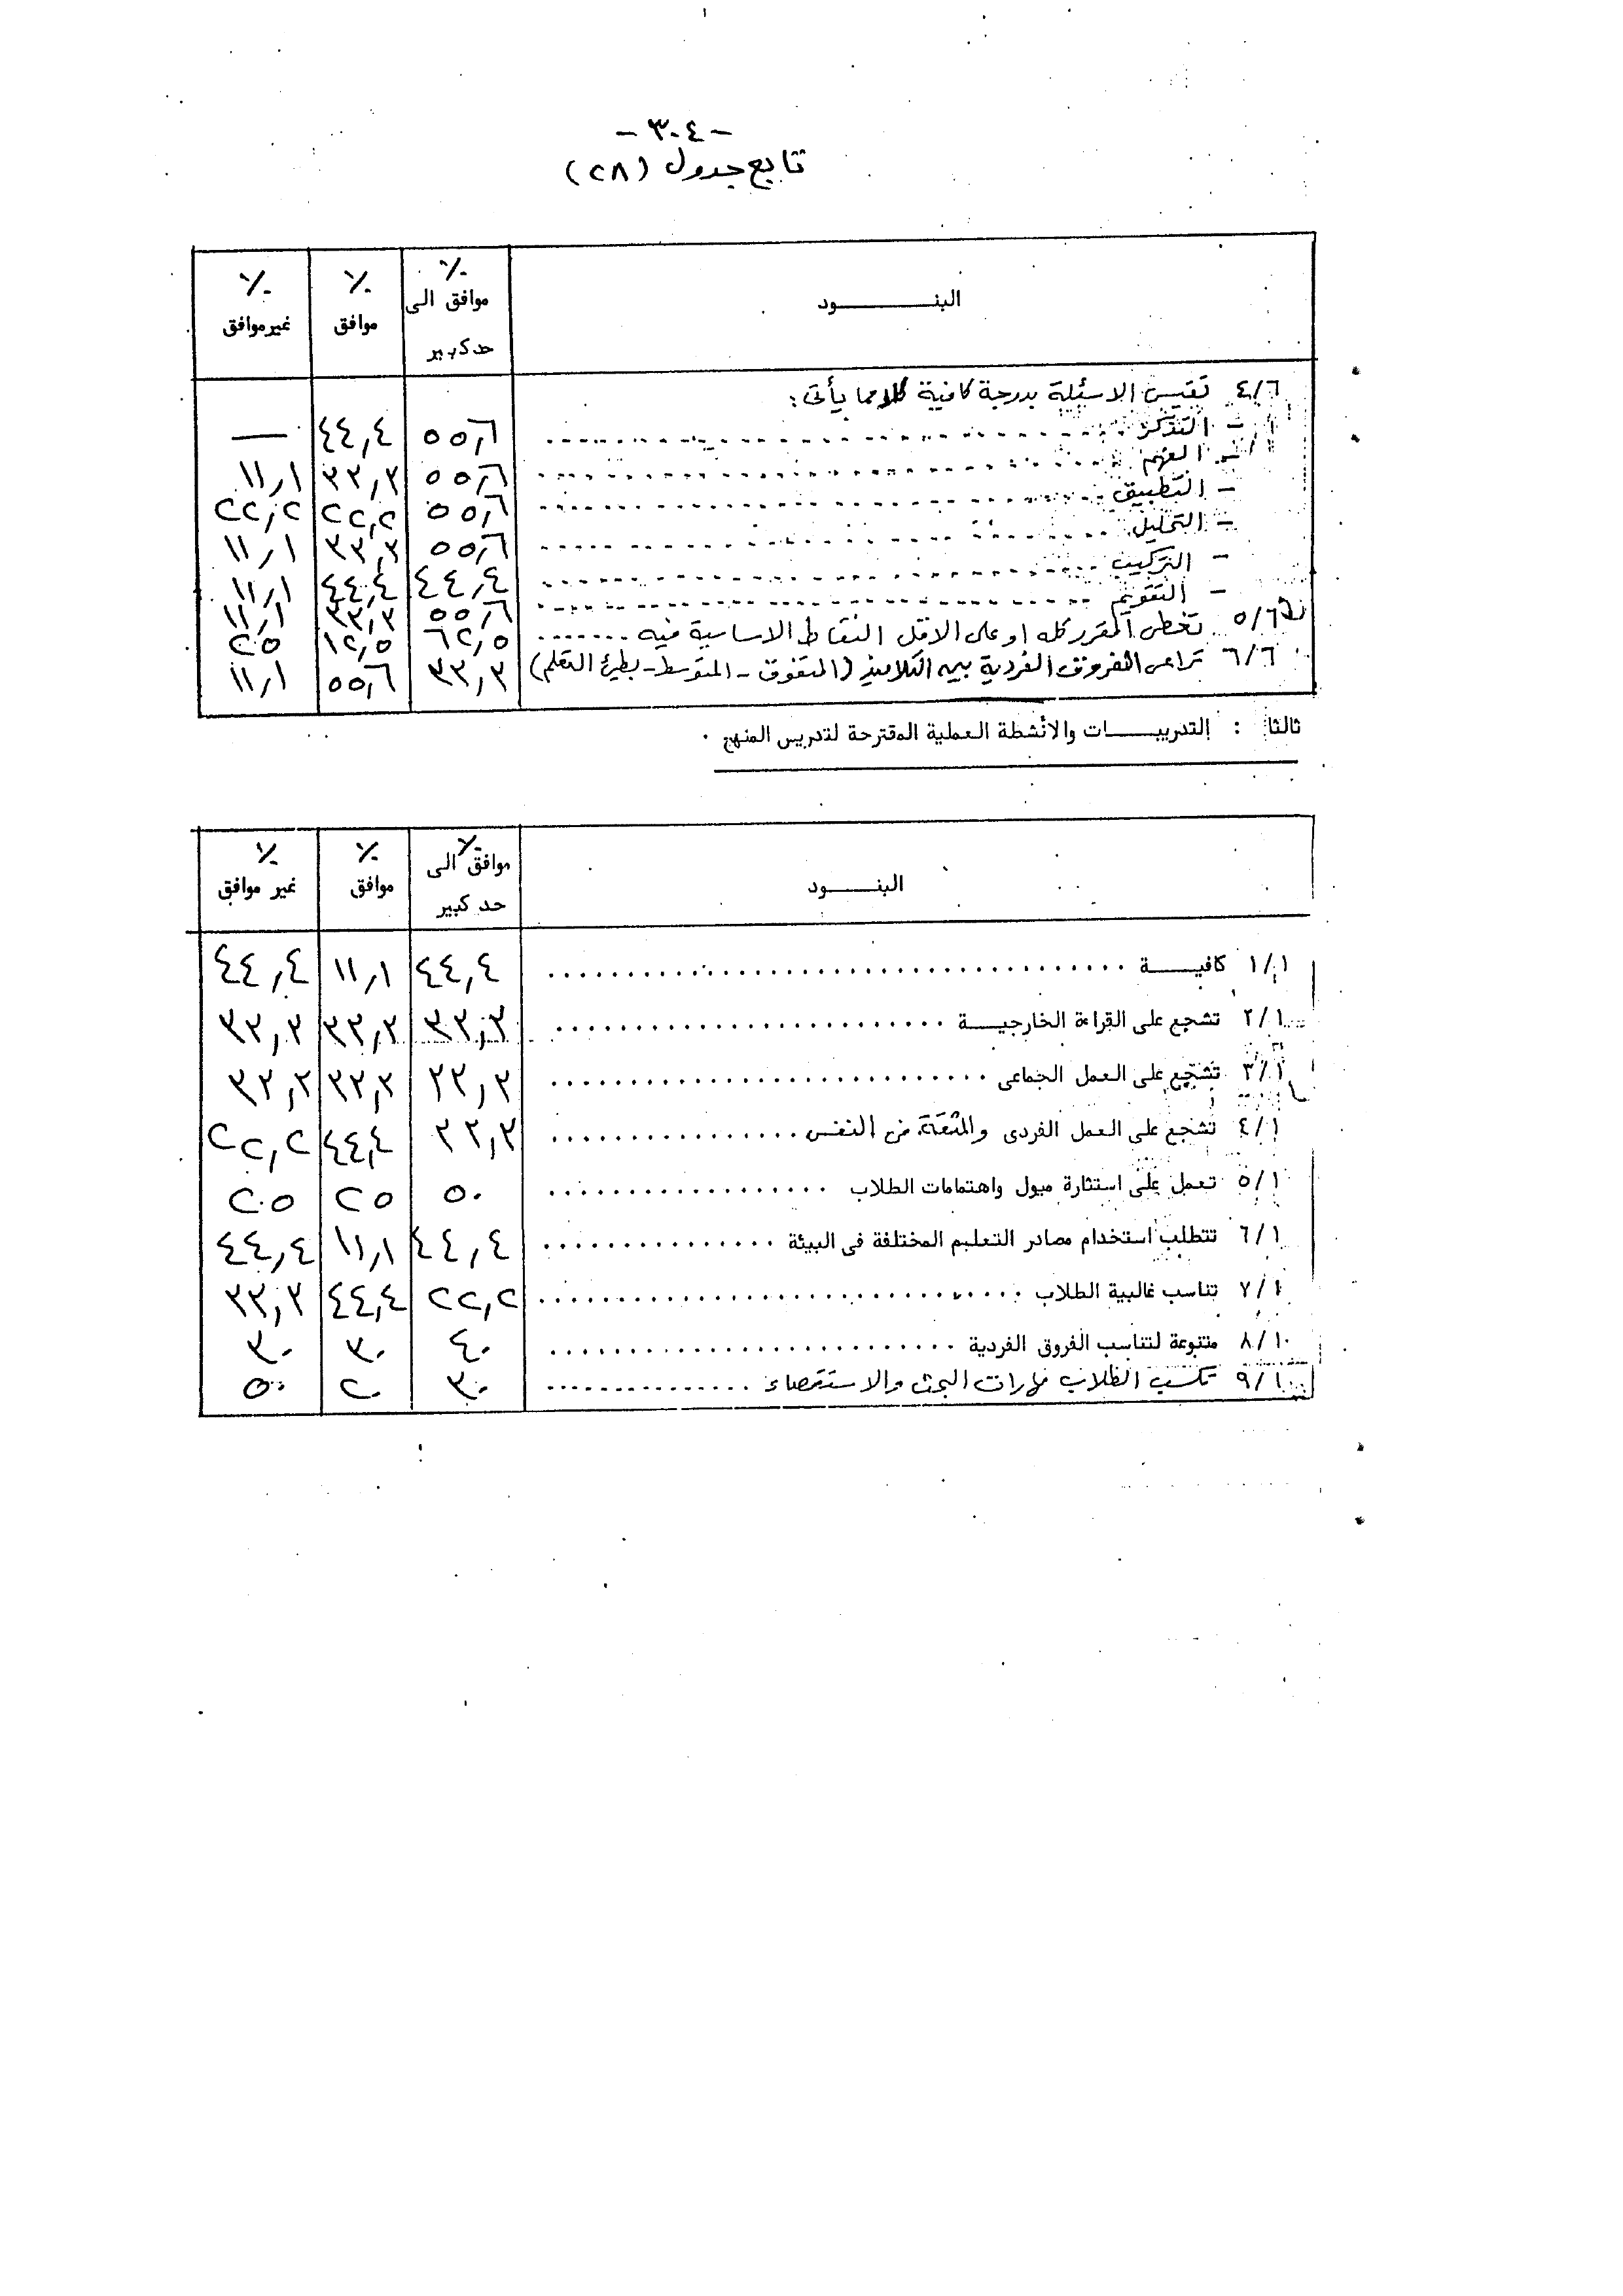 - ٣٠٤ -
تابع جدول (٢٨)
البنــــــود ٪ موافق الى حد كبير ٪ موافق ٪ غير موافق
٤/٦ تقيس الاسئلة بدرجة كافية كلا مما يأتى :
- التذكر ........ ٥٥,٦ ٤٤,٤ —
- الفهم ........ ٥٥,٦ ٣٣,٣ ١١,١
- التطبيق ........ ٥٥,٦ ٢٢,٢ ٢٢,٢
- التحليل ........ ٥٥,٦ ٣٣,٣ ١١,١
- التركيب ........ ٤٤,٤ ٤٤,٤ ١١,١
- التقويم ........ ٥٥,٦ ٣٣,٣ ١١,١
٥/٦ تغطى المقرر كله او على الاقل النقاط الاساسية فيه ....... ٦٢,٥ ١٢,٥ ٢٥
٦/٦ تراعى الفروق الفردية بين التلاميذ (المتفوق - المتوسط - بطىء التعلم) ٣٣,٣ ٥٥,٦ ١١,١
ثالثا : التدريبـــــات والأنشطة العملية المقترحة لتدريس المنهج .
البنــــود ٪ موافق الى حد كبير ٪ موافق ٪ غير موافق
١/١ كافيـــة ........ ٤٤,٤ ١١,١ ٤٤,٤
٢/١ تشجع على القراءة الخارجيـــة ........ ٣٣,٣ ٣٣,٣ ٣٣,٣
٣/١ تشجع على العمل الجماعى ........ ٣٣,٣ ٣٣,٣ ٣٣,٣
٤/١ تشجع على العمل الفردى والثقة فى النفس ........ ٣٣,٣ ٤٤,٤ ٢٢,٢
٥/١ تعمل على استثارة ميول واهتمامات الطلاب ........ ٥٠ ٢٥ ٢٥
٦/١ تتطلب استخدام مصادر التعليم المختلفة فى البيئة ........ ٤٤,٤ ١١,١ ٤٤,٤
٧/١ تناسب غالبية الطلاب ........ ٢٢,٢ ٤٤,٤ ٣٣,٣
٨/١ متنوعة لتناسب الفروق الفردية ........ ٤٠ ٣٠ ٣٠
٩/١ تكسب الطلاب مهارات البحث والاستقصاء ........ ٣٠ ٢٠ ٥٠